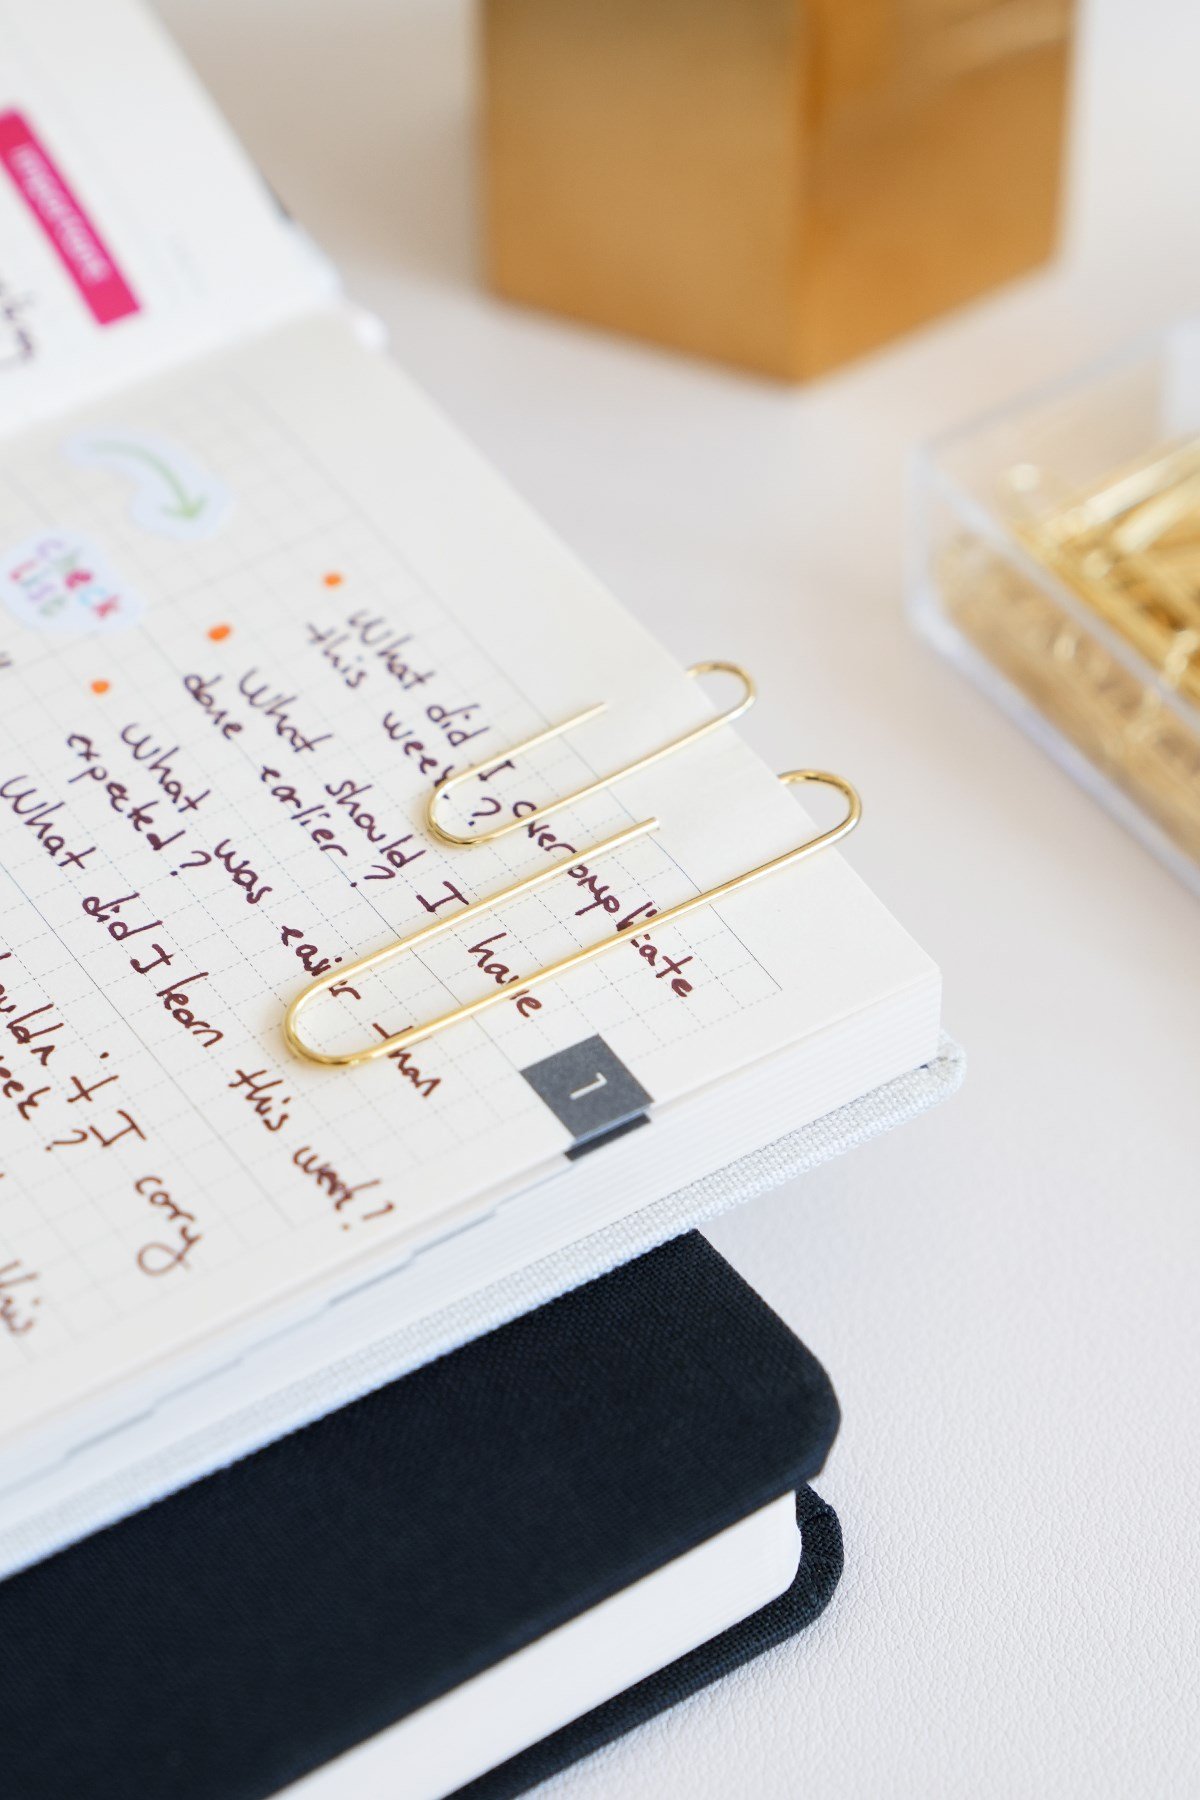 check
LIST
What did I overcomplicate
this week?
What should I have
done earlier?
What was easier than
expected?
What did I learn this week?
ouldn't I carry
eek?
this
1